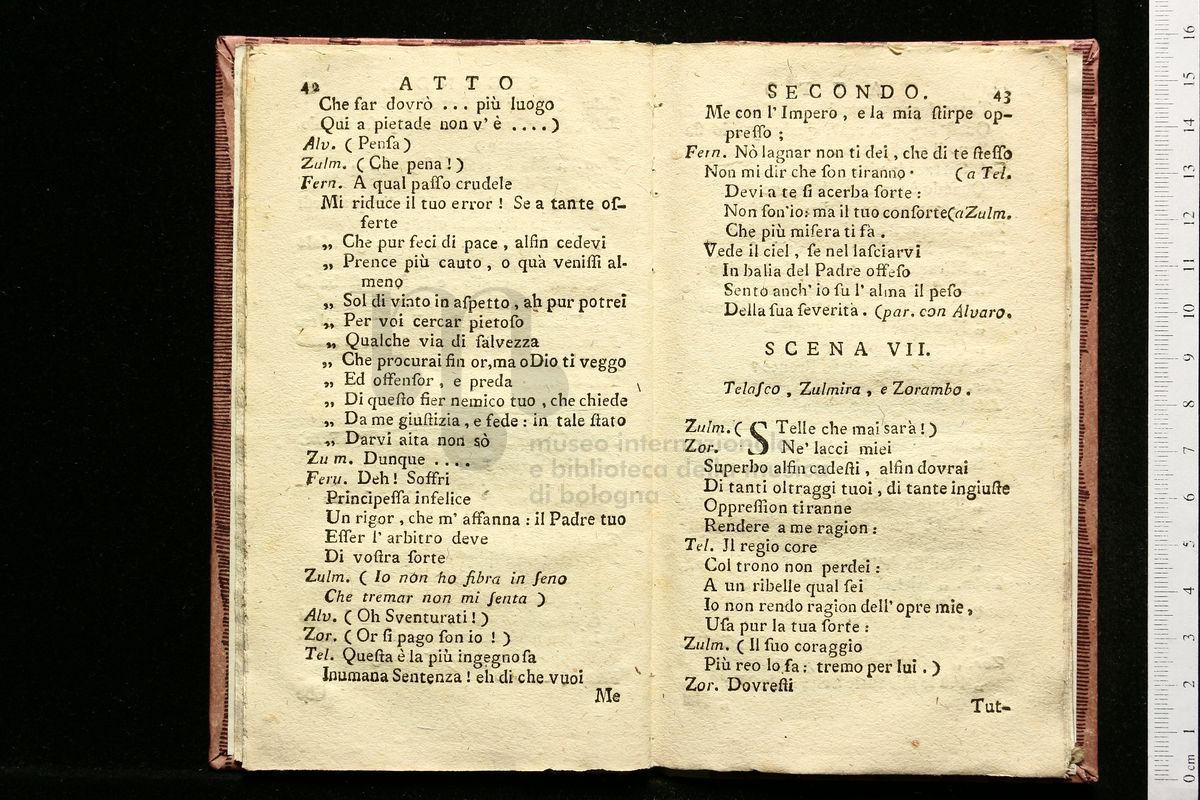 42 ATTO
Che far dovrò ... più luogo
Qui a pietade non v' è ....)
Alv. ( Penſa )
Zulm. ( Che pena ! )
Fern. A qual paſſo crudele
Mi riduce il tuo error ! Se a tante of-
ferte
„ Che pur feci di pace , alfin cedevi
„ Prence più cauto , o quà veniſſi al-
meno
„ Sol di vinto in aſpetto , ah pur potrei
„ Per voi cercar pietoſo
„ Qualche via di ſalvezza
„ Che procurai fin or,ma oDio ti veggo
„ Ed offenſor , e preda
„ Di queſto fier nemico tuo , che chiede
„ Da me giuſtizia , e fede : in tale ſtato
„ Darvi aita non sò
Zu m. Dunque ....
Feru. Deh ! Soffri
Principeſſa infelice
Un rigor , che m' affanna : il Padre tuo
Eſſer l' arbitro deve
Di voſtra ſorte
Zulm. ( Io non ho fibra in ſeno
Che tremar non mi ſenta )
Alv. ( Oh Sventurati ! )
Zor. ( Or ſi pago ſon io ! )
Tel. Queſta è la più ingegnoſa
Inumana Sentenza ! eh di che vuoi
Me
SECONDO. 43
Me con l' Impero , e la mia ſtirpe op-
preſſo ;
Fern. Nò lagnar non ti dei , che di te ſteſſo
Non mi dir che ſon tiranno · (a Tel.
Devi a te ſi acerba ſorte :
Non ſon'io: ma il tuo conſorte(aZulm.
Che più miſera ti fà .
Vede il ciel , ſe nel laſciarvi
In balia del Padre offeſo
Sento anch' io ſu l' alma il peſo
Della ſua ſeverità . (par. con Alvaro.
SCENA VII.
Telaſco , Zulmira , e Zorambo .
Zulm. ( STelle che mai sarà ! )
Zor. Ne' lacci miei
Superbo alfin cadeſti , alfin dovrai
Di tanti oltraggi tuoi , di tante ingiuſte
Oppreſſion tiranne
Rendere a me ragion :
Tel. Il regio core
Col trono non perdei :
A un ribelle qual ſei
Io non rendo ragion dell' opre mie ,
Uſa pur la tua ſorte :
Zulm. ( Il ſuo coraggio
Più reo lo fa : tremo per lui . )
Zor. Dovreſti
Tut-
museo internazionale
e biblioteca della musica
di bologna
0 cm 1 2 3 4 5 6 7 8 9 10 11 12 13 14 15 16